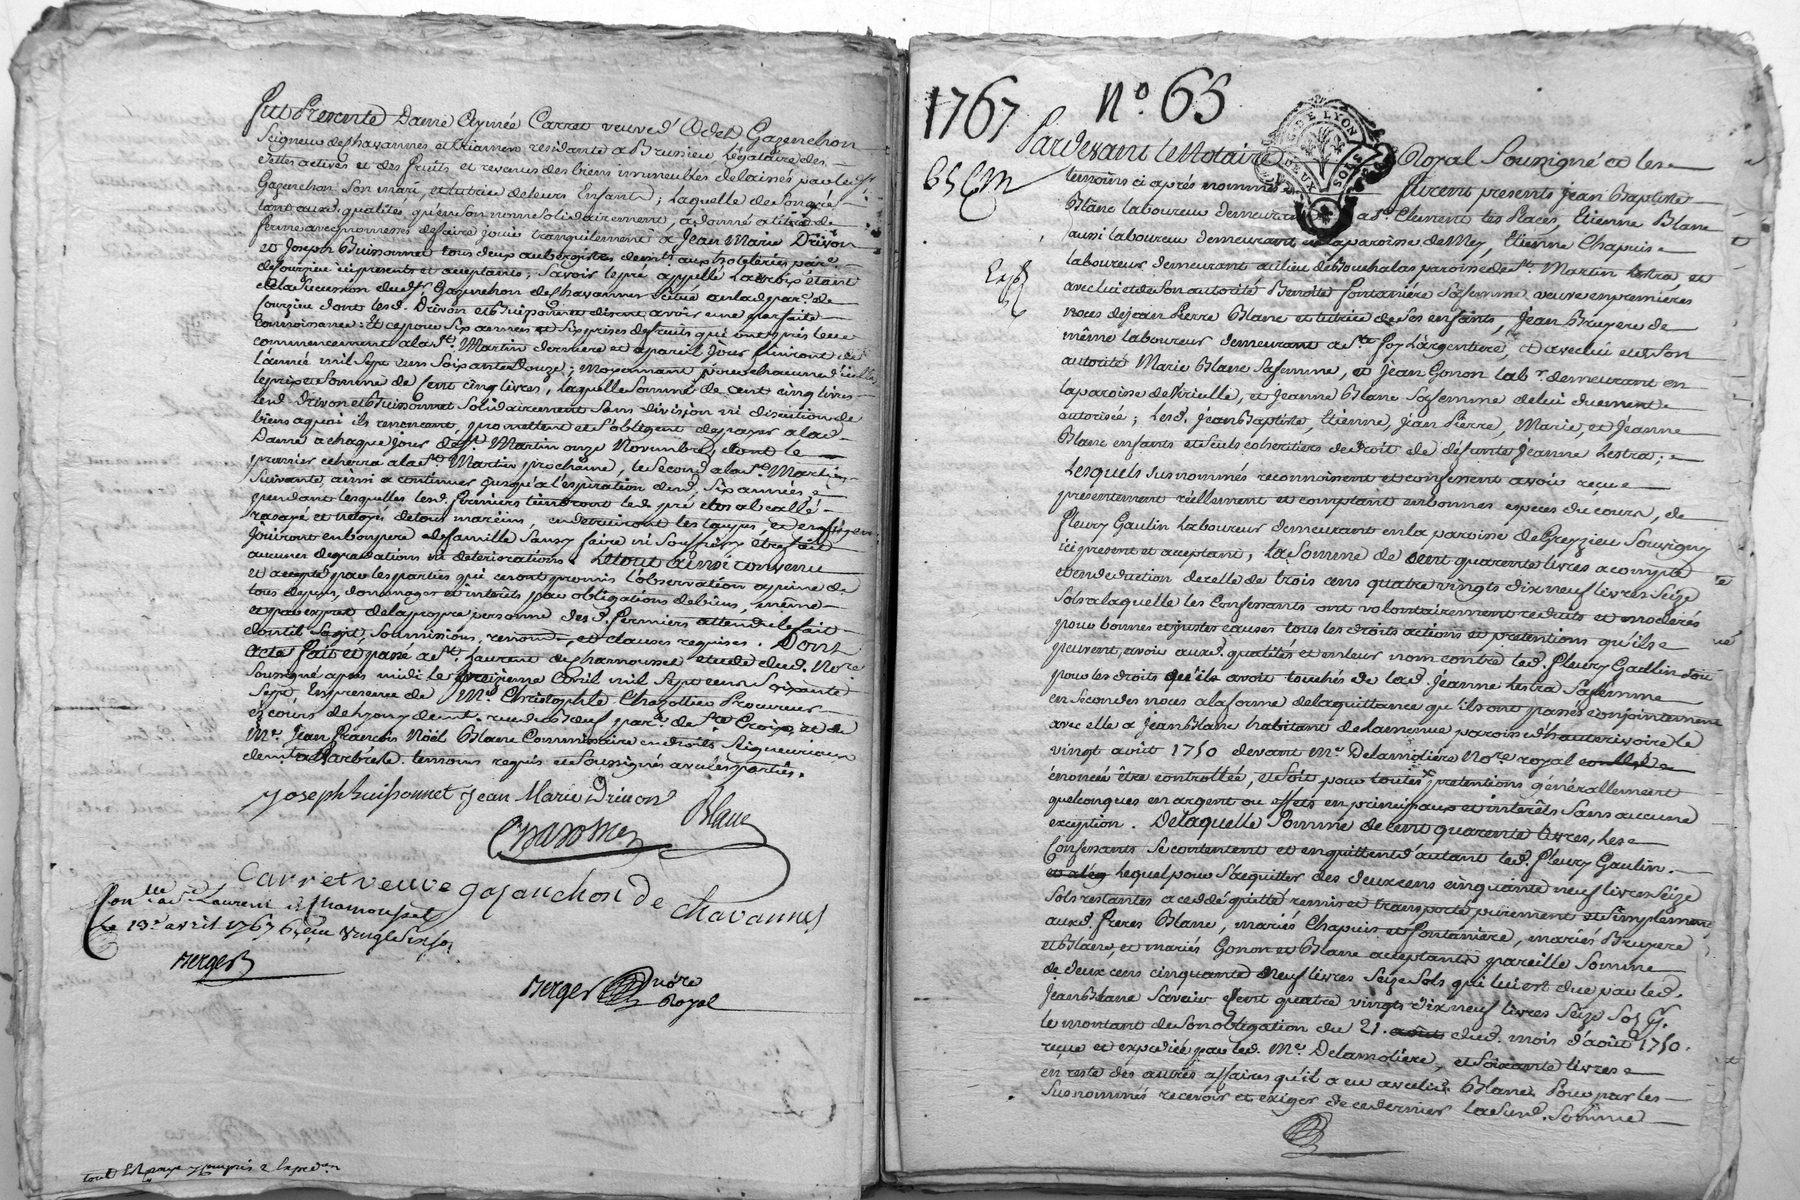 Fut Presente Dame Aymée Carret veuve d' Odet Gazanchon
Seigneur de chavannes et Viannen residante a Brussieu Legataire des
dettes actives et des fruits et revenus des biens immeubles delaissés par led. Sr.
Gazanchon son mari, et tutrice de leurs Enfants; Laquelle de son gré
tant auxd. qualités, qu'en son nom solidairement, a donné a titre de
ferme avec promesses de faire jouir tranquilement à Jean Marie Drivon
et Joseph Buissonnet tous deux aubergistes demts. aux hoteleries paroe.
de fourzieu ici presents et acceptants; Savoir le pré appellé La croix étant
de la succession dud. Sr. Gazanchon de Chavannes Situé en lad. paroe. de
fourzieu dont lesd. Drivon et Buissonnet disent avoir une parfaite
Connoissance: Et ce pour Six années et Six prises de fruits qui ont pris leur
commencement a la St. Martin derniere et a pareil Jour finiront de
l'année mil Sept cens Soixante Douze; moyennant pour chacune d'icelles
le prix et Somme de Cent cinq livres, laquelle Somme de Cent cinq livres
lesd. Drivon et Buissonnet Solidairement Sans division ni discution de
biens aquoi ils renoncent, promettent et S'obligent de payer a lad.
Dame a chaque jour de St. Martin onze Novembre, dont le
premier echerra a la St. Martin prochaine, le Second a la St. Martin
Suivante ainsi a continuer jusqu'a l'expiration desd. Six années,
pendant lesquelles lesd. fermiers tiendront led. pré clos al et allé
rasoyé et netoyé de tous mareins, en detruiront les taupes, et en
Jouiront en bon pere de famille Sans y faire ni Souffrir être fait
aucunes degradations ni deteriorations. Le tout ainsi convenu
et accepté par les parties qui en ont promis l'observation a peine de
tous depens, dommages et interêts par obligations de biens, même
et par exprés de la propre personne des d. Fermiers attendu le fait
dont il S'agit, Soumissions, renonons. et clauses requises. Dont
Acte fait et passé a St. Laurent de Chamousset etude dud. Nore.
Soussigné aprés midi le treizieme Avril mil Sept cens Soixante
Sept. En presence de Me. Christophle Chazottier Procureur
és cours de Lyon y demt. rue du Boeuf paroe. de Ste. Croix, et de
Me. Jean François Noël Blanc Commissaire en droits Seigneuriaux
demt. a L'arbresle temoins requis et Soussignés avec les parties.
Joseph buissonnet Jean Marie Drivon
Blanc
Carret veuve gazanchon de
chavannes
Conlle. a St. Laurent de Chamousset
Le 13e. avril 1767
Berger
Berger Nore
Royal
1767 No. 65
65 Em
Pardevant le Notaire Royal Soussigné et les
temoins ci aprés nommés furent presents Jean Baptiste
Blanc laboureur demeurant a St. Clement les Places, Etienne Blanc
aussi laboureur demeurant en la paroisse de Meys, Etienne Chapuis
laboureur demeurant au lieu de Bouchalas paroisse de St. Martin lestra, et
avec lui et de son autorité Benoîte Fontaniére Sa femme, veuve en premières
noces de Jean Pierre Blanc et tutrice de Ses enfants, Jean Bruyere de
même laboureur demeurant a Ste. Foy L'argentiere, et avec lui et de Son
autorité Marie Blanc Sa femme, et Jean Gonon labr. demeurant en
la paroisse de Virielle, et Jeanne Blanc Sa femme de lui duement
autorisée; Lesd. Jean Baptiste, Etienne, Jean Pierre, Marie, et Jeanne
Blanc enfants et seuls coheritiers de droit de défunte Jeanne Lestra;
Lesquels susnommés reconnoissent et confessent avoir reçu
présentement réellement et comptant en bonnes especes du cours, de
Fleury Gaulin Laboureur demeurant en la paroisse de Greyzieu Souvigny
ici present et acceptant, La Somme de Cent quarente livres a compte
et en deduction de celle de trois cens quatre vingts dix neuf livres Seize
Sols a laquelle les Confessants ont volontairement reduits et modérés
pour bonnes et justes causes tous les droits actions et pretentions qu'ils
peuvent, avoir auxd. qualités et en leur nom contre led. Fleury Gaullin Soit
pour les droits qu'ils avoit touchés de lad. Jeanne Lestra Sa femme
en Secondes noces a la forme de la quittance qu'ils ont passés conjointement
avec elle a Jean Blanc habitant de Lamenue paroisse d'hauterivoire le
vingt août 1750 devant Me. Delamoliére Nore. royal
énoncée être controllée, et Soit pour toutes pretentions générallement
quelconques en argent ou effets en principaux et interêts Sans aucune
exception. De laquelle Somme de Cent quarente livres, Les
Confessants Se contentent et en quittent d'autant led. Fleury Gaulin.
Lequel pour S'acquitter des deux cens cinquante neuf livres Seize
Sols restantes a cedé quitté remis et transporté purement et Simplement
auxd. freres Blanc, mariés Chapuis et Fontaniére, mariés Bruyere
et Blanc, et mariés Gonon et Blanc acceptants pareille Somme
de deux cens cinquante Neuf livres Seize Sols qui lui est due par led.
Jean Blanc Savoir Cent quatre vingts dix neuf livres Seize Sols
le montant de Son obligation du 21. août dud. mois d'août 1750.
reçue et expediée par led. Me. Delamoliere, et Soixante livres
en reste des autres affaires qu'il a eu avec led. Blanc. Pour par les
Susnommés recevoir et exiger de ce dernier Lasusd. Somme